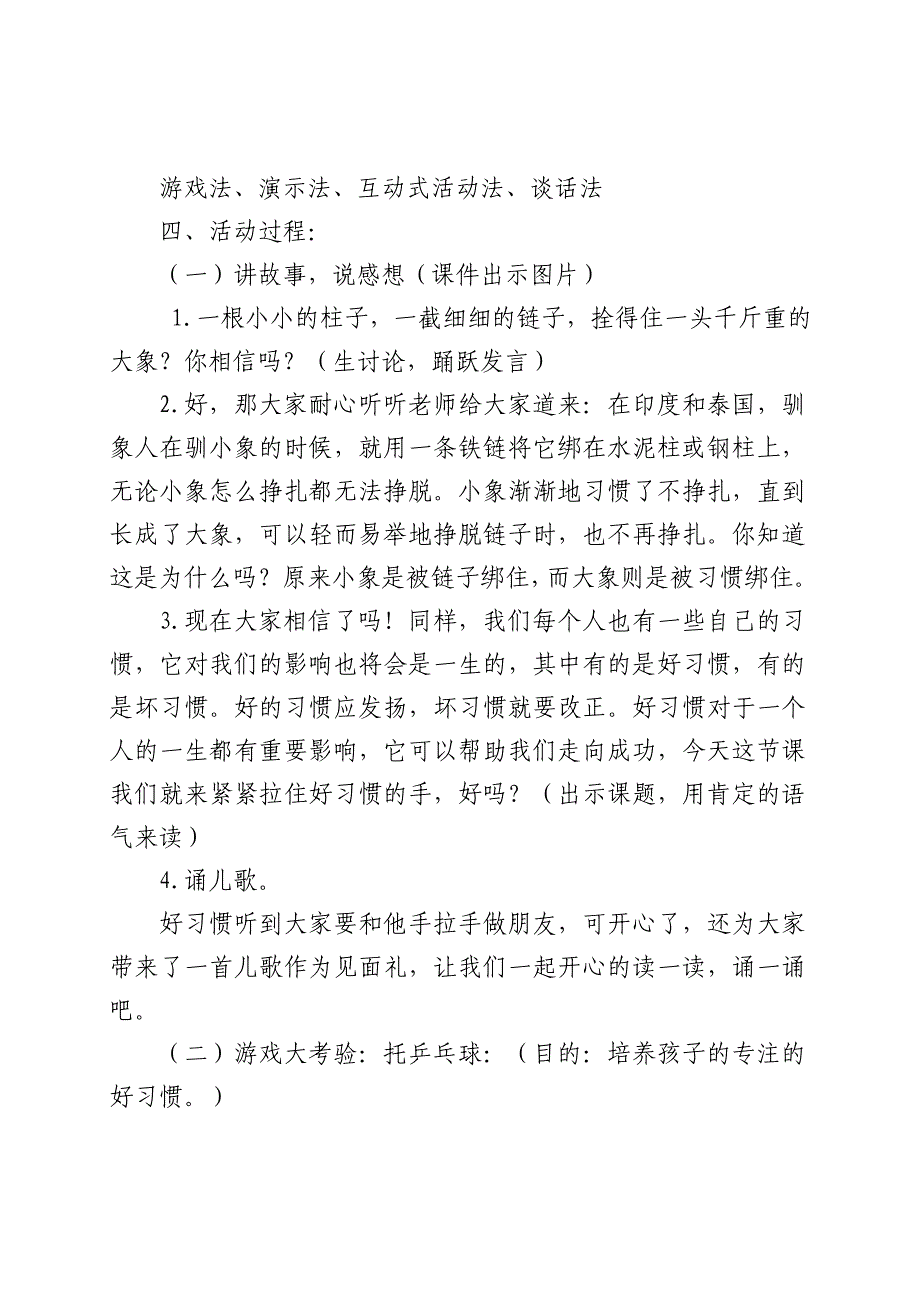 游戏法、演示法、互动式活动法、谈话法
四、活动过程：
（一）讲故事，说感想（课件出示图片）
1.一根小小的柱子，一截细细的链子，拴得住一头千斤重的
大象？你相信吗？（生讨论，踊跃发言）
2.好，那大家耐心听听老师给大家道来：在印度和泰国，驯
象人在驯小象的时候，就用一条铁链将它绑在水泥柱或钢柱上，
无论小象怎么挣扎都无法挣脱。小象渐渐地习惯了不挣扎，直到
长成了大象，可以轻而易举地挣脱链子时，也不再挣扎。你知道
这是为什么吗？原来小象是被链子绑住，而大象则是被习惯绑住。
3.现在大家相信了吗！同样，我们每个人也有一些自己的习
惯，它对我们的影响也将会是一生的，其中有的是好习惯，有的
是坏习惯。好的习惯应发扬，坏习惯就要改正。好习惯对于一个
人的一生都有重要影响，它可以帮助我们走向成功，今天这节课
我们就来紧紧拉住好习惯的手，好吗？（出示课题，用肯定的语
气来读）
4.诵儿歌。
好习惯听到大家要和他手拉手做朋友，可开心了，还为大家
带来了一首儿歌作为见面礼，让我们一起开心的读一读，诵一诵
吧。
（二）游戏大考验：托乒乓球：（目的：培养孩子的专注的
好习惯。）